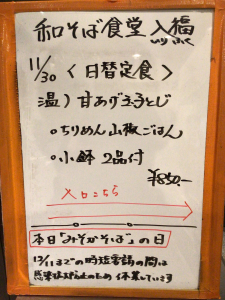 和そば食堂 入福
いりふく
11/30 〈日替定食〉
温) 甘あげ玉子とじ
○ちりめん山椒ごはん
○小鉢 2品付
¥850.-
入口こちら
本日「みそかそば」の日
12/11までの時短要請の間は
拡大防止のため 休業しています